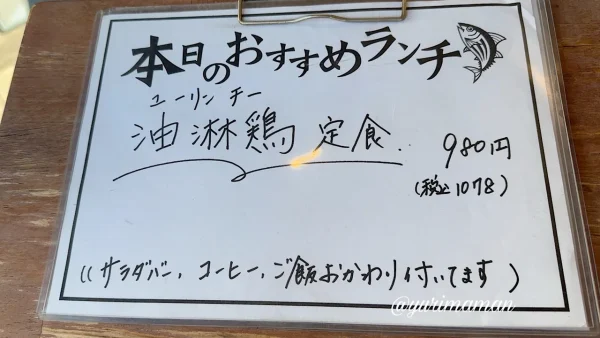 本日のおすすめランチ
ユーリンチー
油淋鶏定食..
980円
(税込1078)
((サラダバー、コーヒー、ご飯おかわり付いてます)
@yurimaman